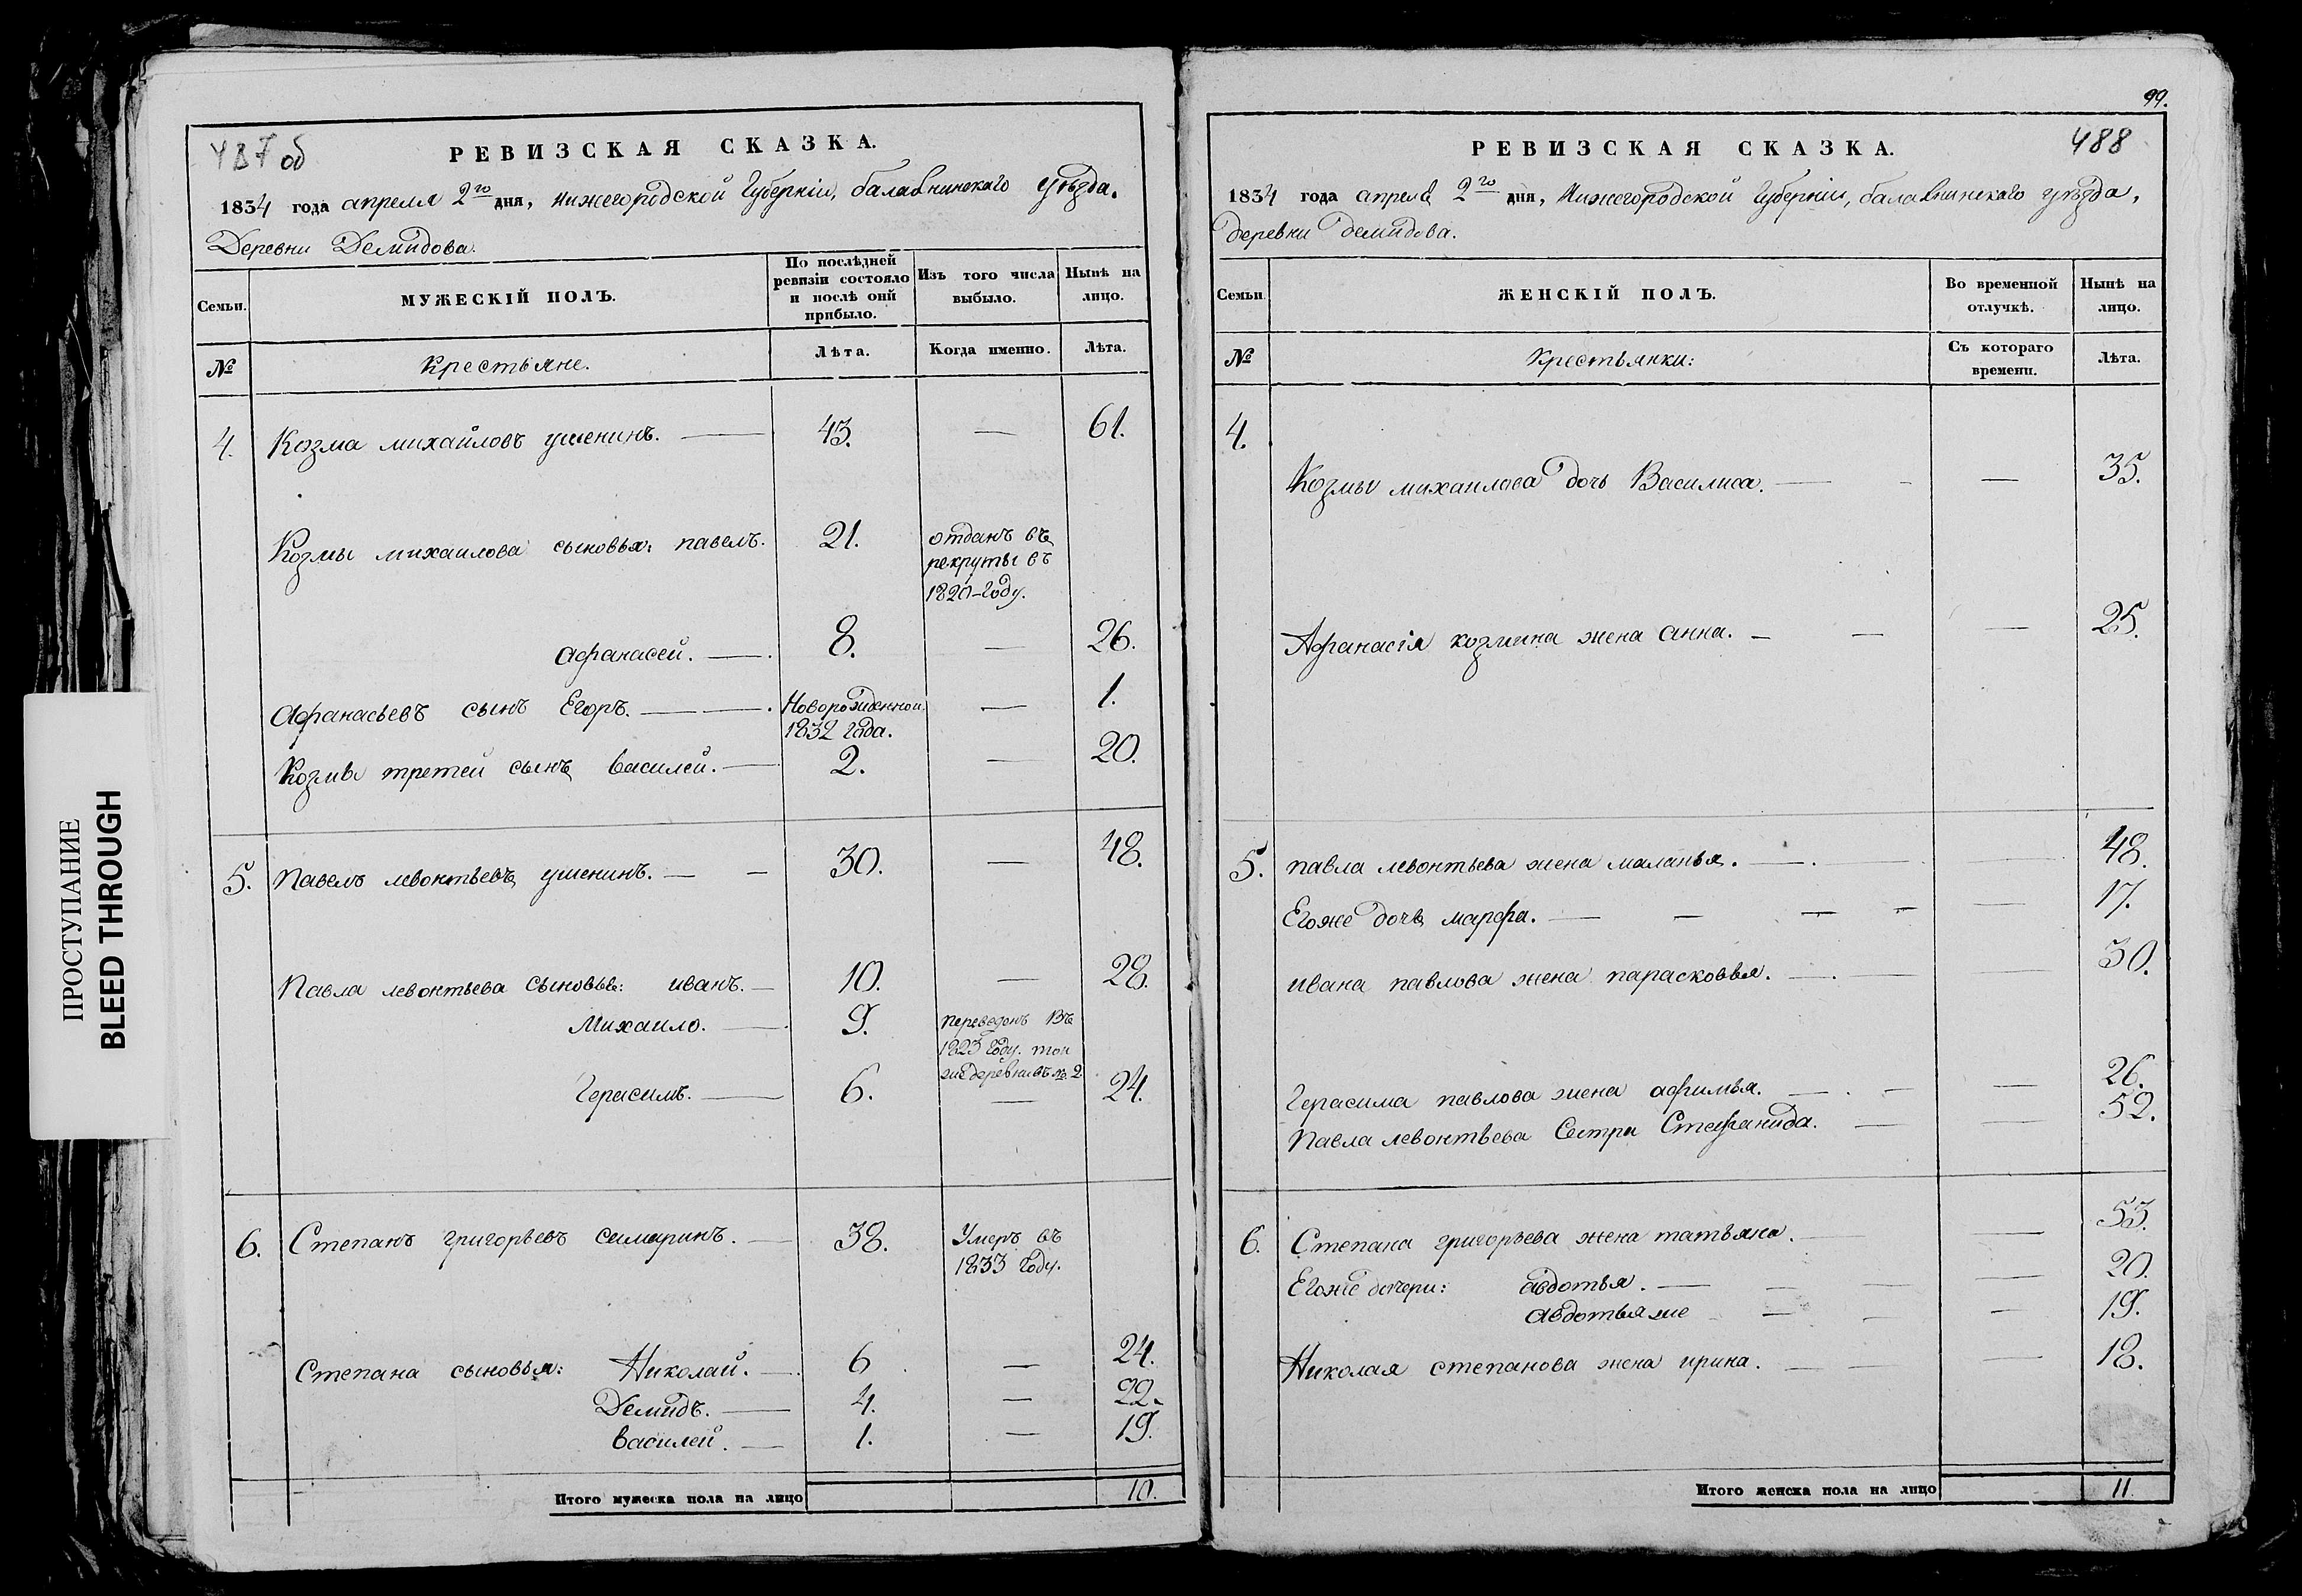 ПРОСТУПАНИЕ
BLEED THROUGH
487 об
РЕВИЗСКАЯ СКАЗКА.
1834 года апреля 2го дня, Нижегородской Губерніи, балахнинскаго уѣзда.
Деревни Демидова.
Семьи. МУЖЕСКІЙ ПОЛЪ. По послѣдней ревизіи состояло и послѣ оной прибыло. Изъ того числа выбыло. Нынѣ на лицо.
№ Крестьяне. Лѣта. Когда именно. Лѣта.
4. Козма михайловъ ушенинъ. — 43. — 61.
Козмы михаилова сыновья: павелъ. 21. отданъ въ
рекруты въ
1820-Году.
афанасей. — 8. — 26.
афанасьевъ сынъ Егоръ. — Новорожденной — 1.
1832 Года.
Козмы третей сынъ василей. — 2. — 20.
5. Павелъ левонтьевъ ушенинъ. — 30. — 48.
Павла левонтьева сыновья: иванъ. — 10. — 28.
Михаило. — 9. переведенъ Въ
1823 Году. той
же деревни въ № 2
Герасимъ. — 6. — 24.
6. Степанъ григорьевъ симаринъ. — 38. Умеръ въ
1833 Году.
Степана сыновья: Николай. — 6 — 24.
Демидъ. — 4. — 22.
василей. — 1. — 19.
Итого мужеска пола на лицо 10.
99.
488
РЕВИЗСКАЯ СКАЗКА.
1834 года апреля 2го дня, Нижегородской Губерніи, балахнинскаго уѣзда,
деревни демидова.
Семьи. ЖЕНСКІЙ ПОЛЪ. Во временной отлучкѣ. Нынѣ на лицо.
№ Крестьянки: Съ котораго времени. Лѣта.
4.
Козмы михаилова дочь Василиса. — — 35.
Афанасія козмина жена анна. — — 25.
5. павла левонтьева жена маланья. — 48.
Егоже дочь марфа. — — 17.
ивана павлова жена парасковья. — — 30.
Герасима павлова жена афимья. — — 26.
Павла левонтьева Сестра Стефанида. — — 52.
6. Степана григорьева жена татьяна. — — 53.
Егоже дочери: авдотья. — — 20.
авдотья же — — 19.
Николая степанова жена ирина. — — 18.
Итого женска пола на лицо 11.